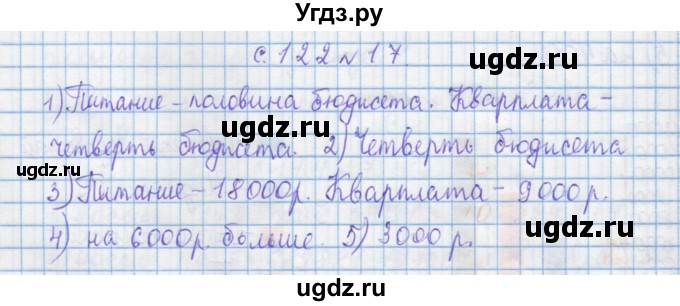 Угдз.ру
с. 122 № 17.
1) Питание - половина бюджета. Квартплата -
четверть бюджета. 2) Четверть бюджета
3) Питание - 18000р. Квартплата - 9000р.
4) на 6000р. больше. 5) 3000 р.
ugdz.ru
ugdz.ru
ugdz.ru
ugdz.ru
ugdz.ru
ugdz.ru
ugdz.ru